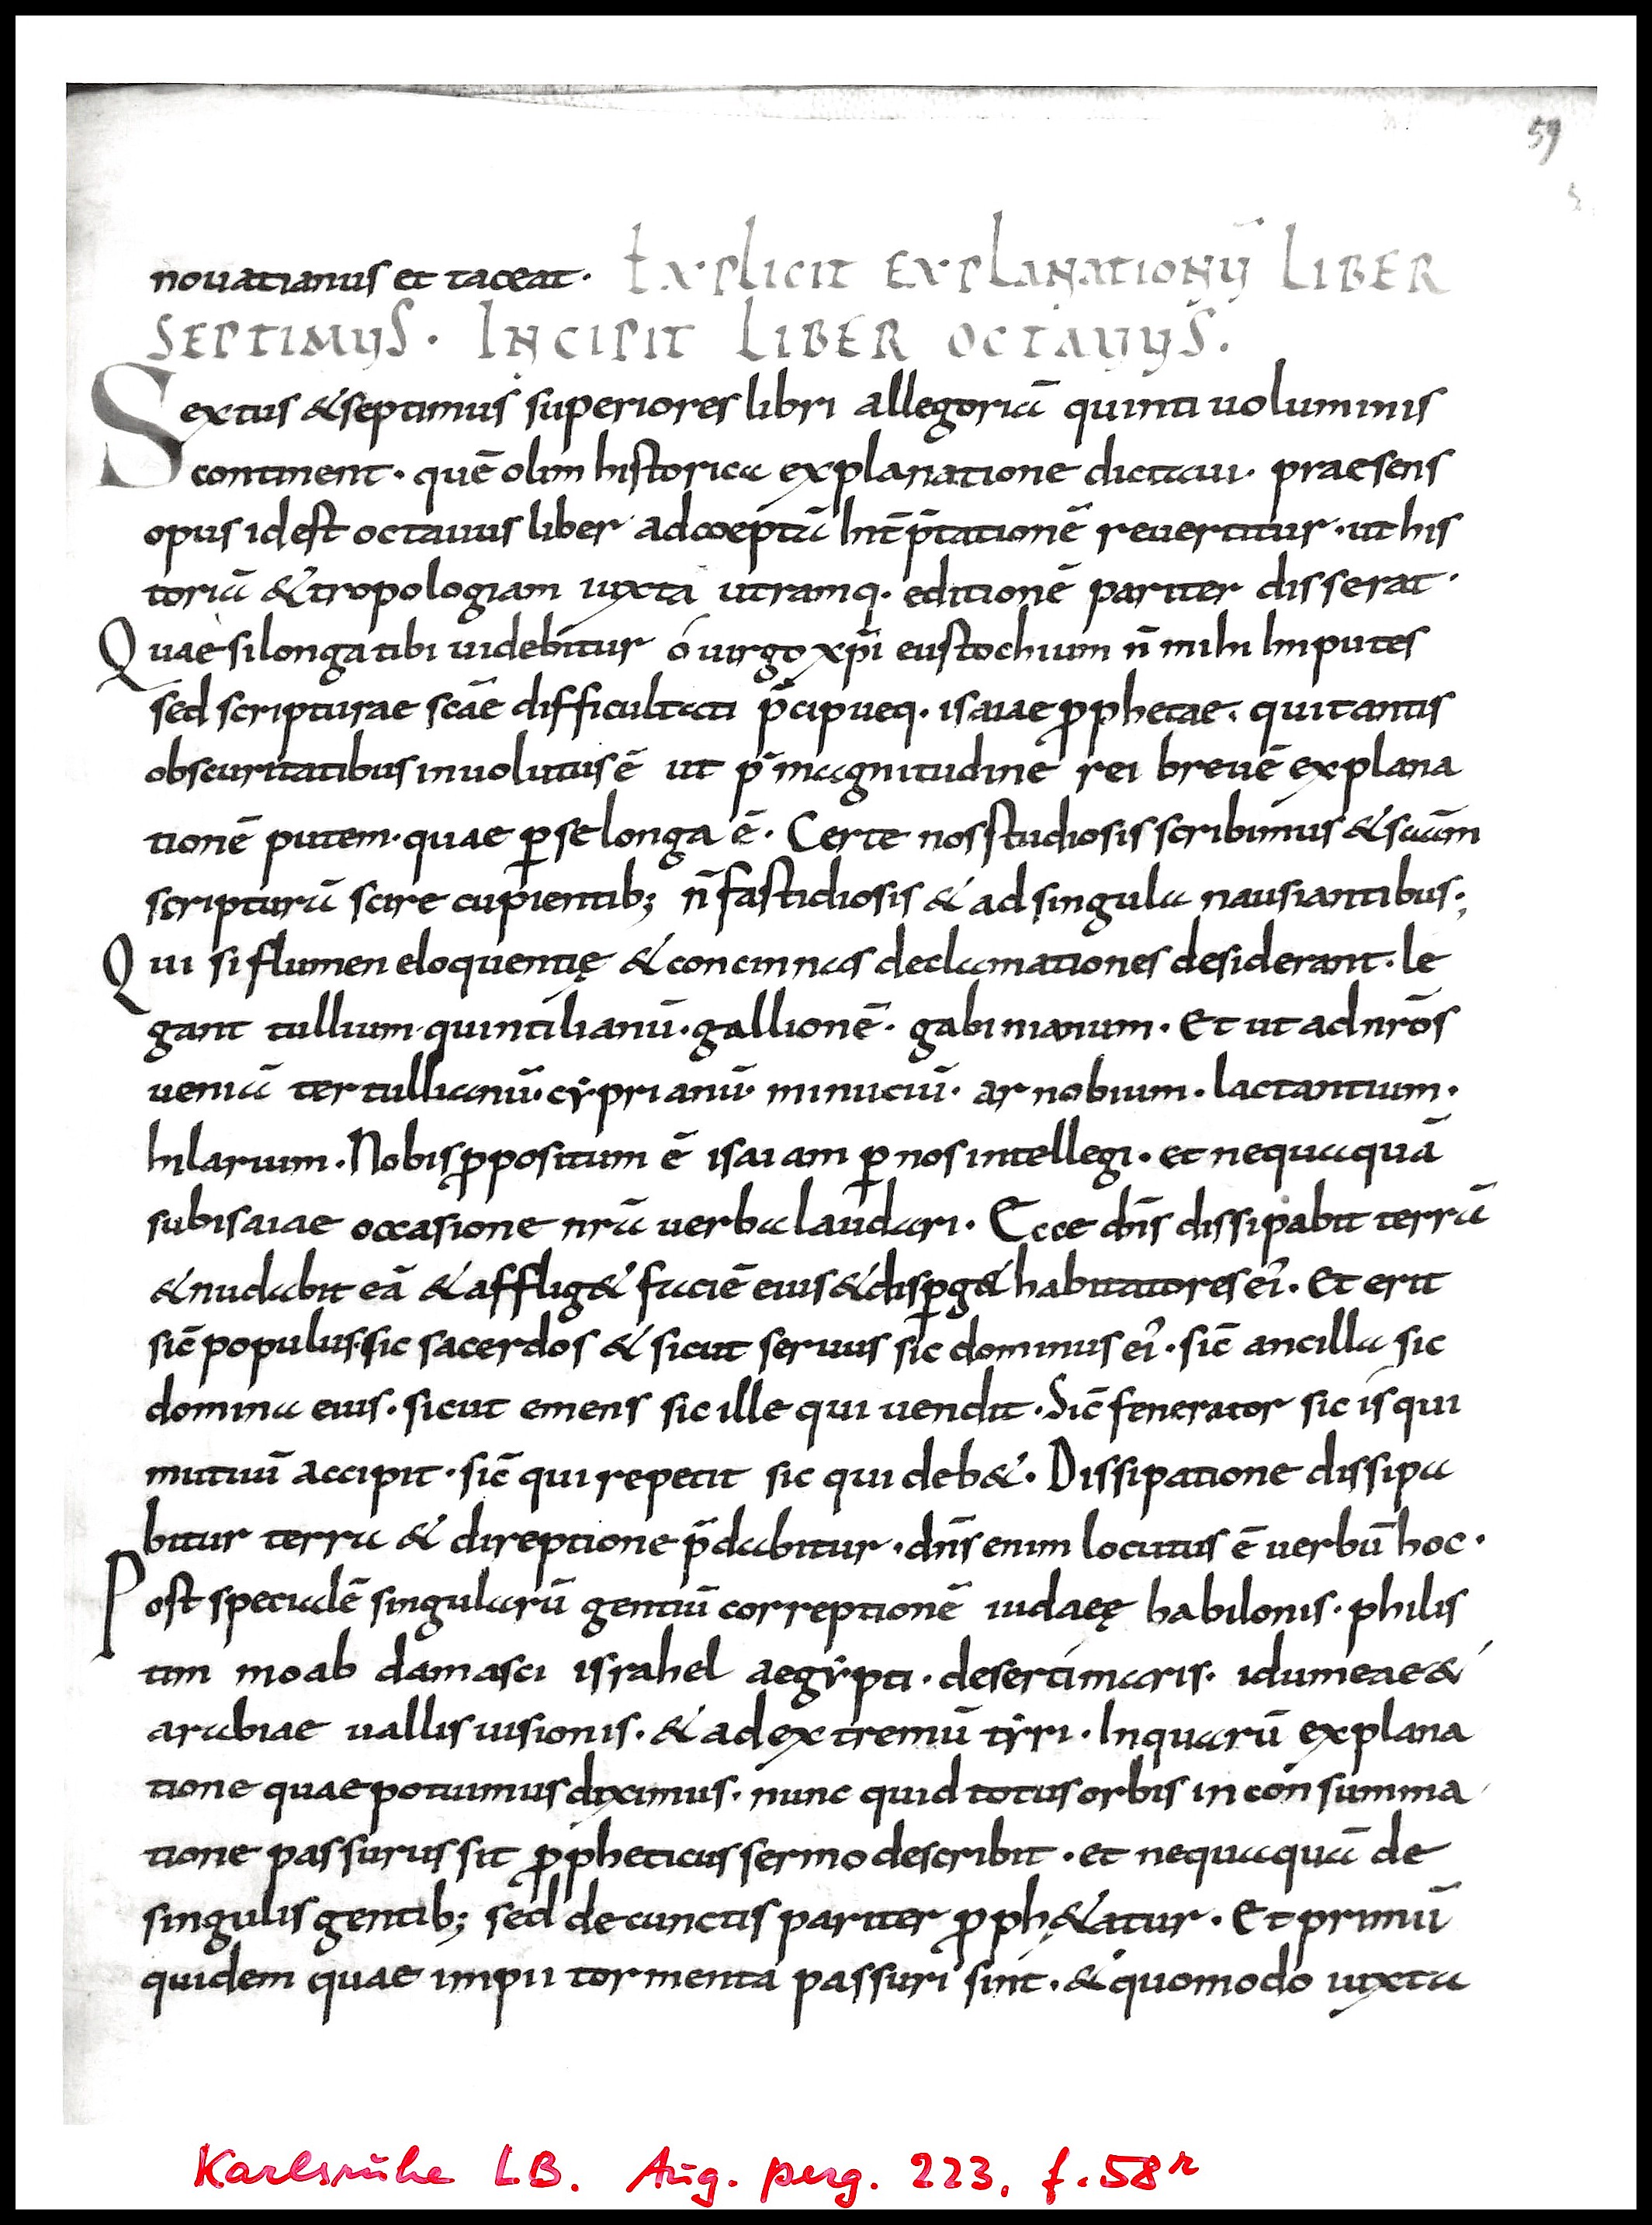 59
nouatianus et taceat· EXPLICIT EXPLANATIONŪ LIBER
SEPTIMUS· INCIPIT LIBER OCTAVUS.
Sextus & septimus superiores libri allegoriā quinti uoluminis
continent· quē olim historica explanatione dictaui· praesens
opus id est octauus liber ad coeptā int̄p̄tationē reuertitur· ut his
toriā & tropologiam iuxta utramq· editionē pariter disserat·
Quae si longa tibi uidebitur ó uirgo xp̄i eustochium n̄ mihi Imputes
sed scripturae scāe difficultati p̄cipueq· isaiae ꝓphetae· qui tantis
obscuritatibus inuolutus ē ut p̄ magnitudine rei breuē explana
tionē putem· quae ꝑ se longa ē· Certe nos studiosis scribimus & scām
scripturā scire cupientib; n̄ fastidiosis & ad singula nausiantibus·
Qui si flumen eloquentię & concinnas declamationes desiderant· le
gant tullium· quintilianū· gallionē· gabinianum· Et ut ad nr̄os
ueniā tertullianū· cẏprianū· minuciū· arnobium· lactantium·
hilarium· Nobis ꝓpositum ē isaiam ꝑ nos intellegi· et nequaquā
sub isaiae occasione nr̄a uerba laudari· Ecce dn̄s dissipabit terrā
& nudabit eā & afflig& faciē eius & disꝑg& habitatores ei᾽· Et erit
sic̄ populus· sic sacerdos & sicut seruus sic dominus ei᾽· sic̄ ancilla sic
domina eius· sicut emens sic ille qui uendit· Sic̄ fenerator sic is qui
mutuū accipit· sic̄ qui repetit sic qui deb&· Dissipatione dissipa
bitur terra & direptione p̄dabitur· dn̄s enim locutus ē uerbū hoc·
Post specialē singularū gentiū correptionē iudaeę babilonis· philis
tim moab damasci israhel aegẏpti· deserti maris· idumeae &
arabiae uallis uisionis· & ad extremū tẏri· In quarū explana
tione quae potuimus diximus· nunc quid totus orbis in consumma
tione passurus sit ꝓpheticus sermo describit· et nequaquā de
singulis gentib; sed de cunctis pariter ꝓph&atur· Et primū
quidem quae impii tormenta passuri sint· & quomodo iuxta
Karlsruhe LB. Aug. perg. 223, f. 58r